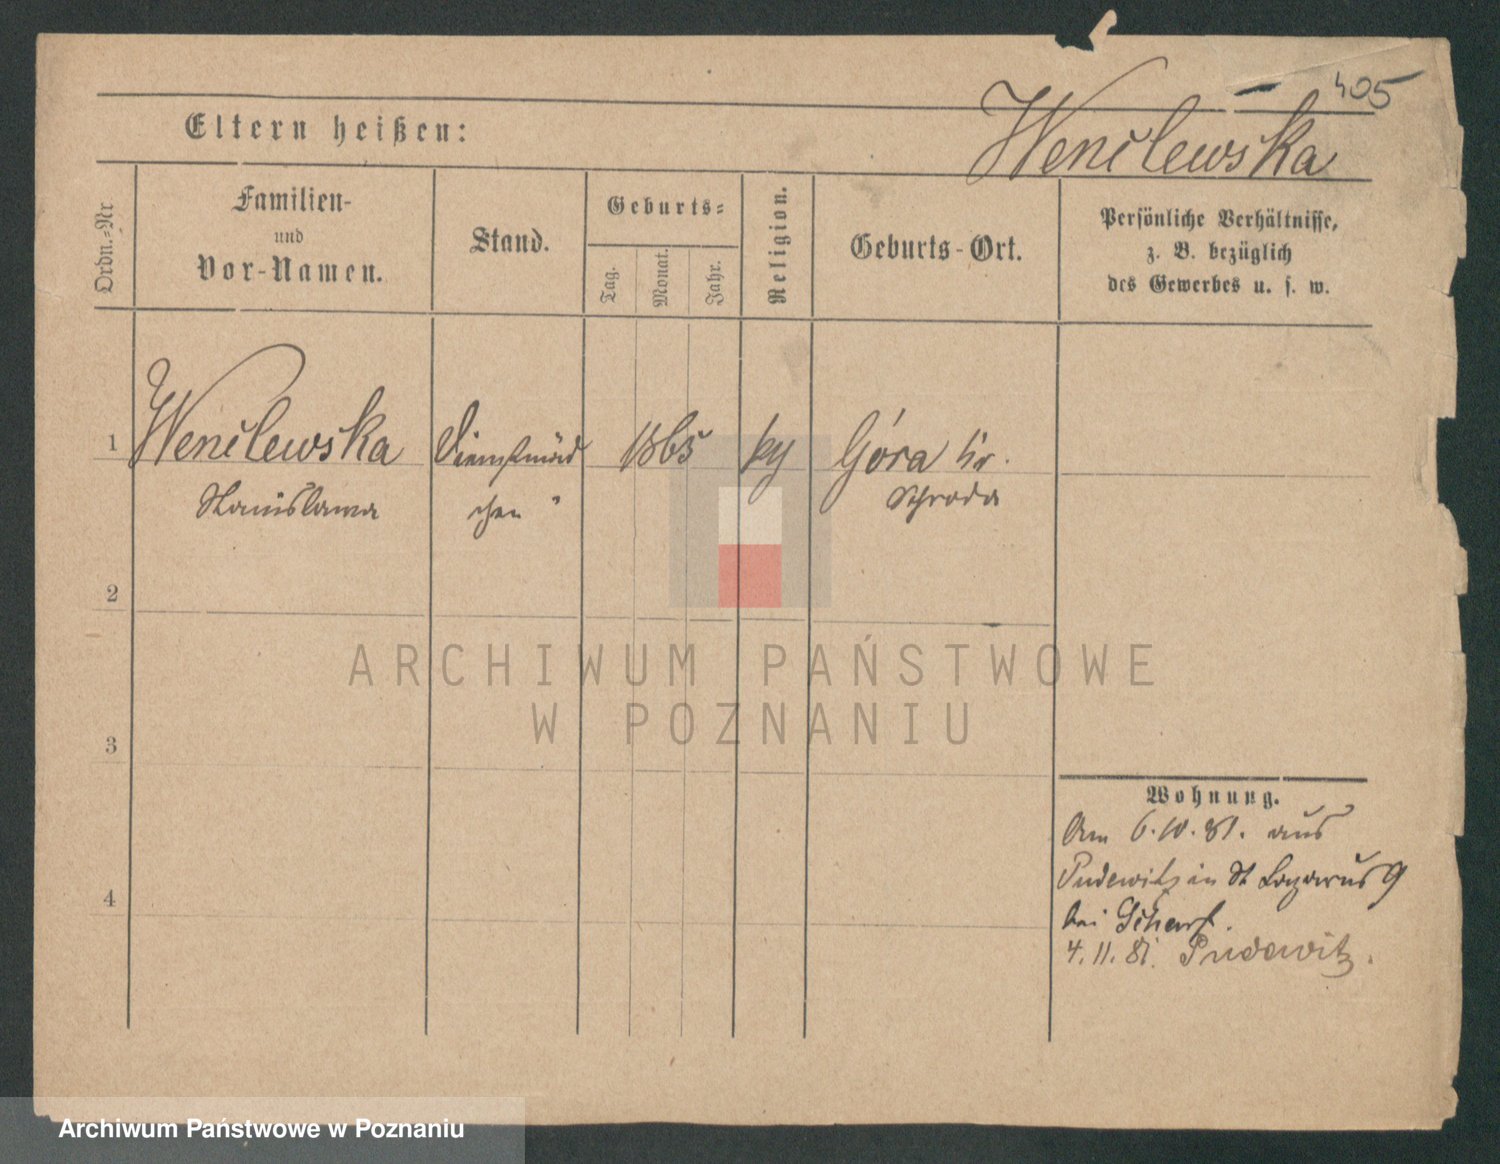 405
Wenclewska
Eltern heißen:
Ordn.-Nr
Familien-
und
Vor-Namen.
Stand.
Geburts-
Tag.
Monat.
Jahr.
Religion.
Geburts-Ort.
Persönliche Verhältnisse,
z. B. bezüglich
des Gewerbes u. s. w.
1 Wenclewska Dienstmäd 1865 Góra Kr.
Stanislawa chen Schroda
2
3
4
Wohnung.
Am 6.10.81. aus
Pudewitz in St Lazarus 9
bei Scharf.
4.11.81. Pudewitz.
ARCHIWUM PAŃSTWOWE
W POZNANIU
Archiwum Państwowe w Poznaniu